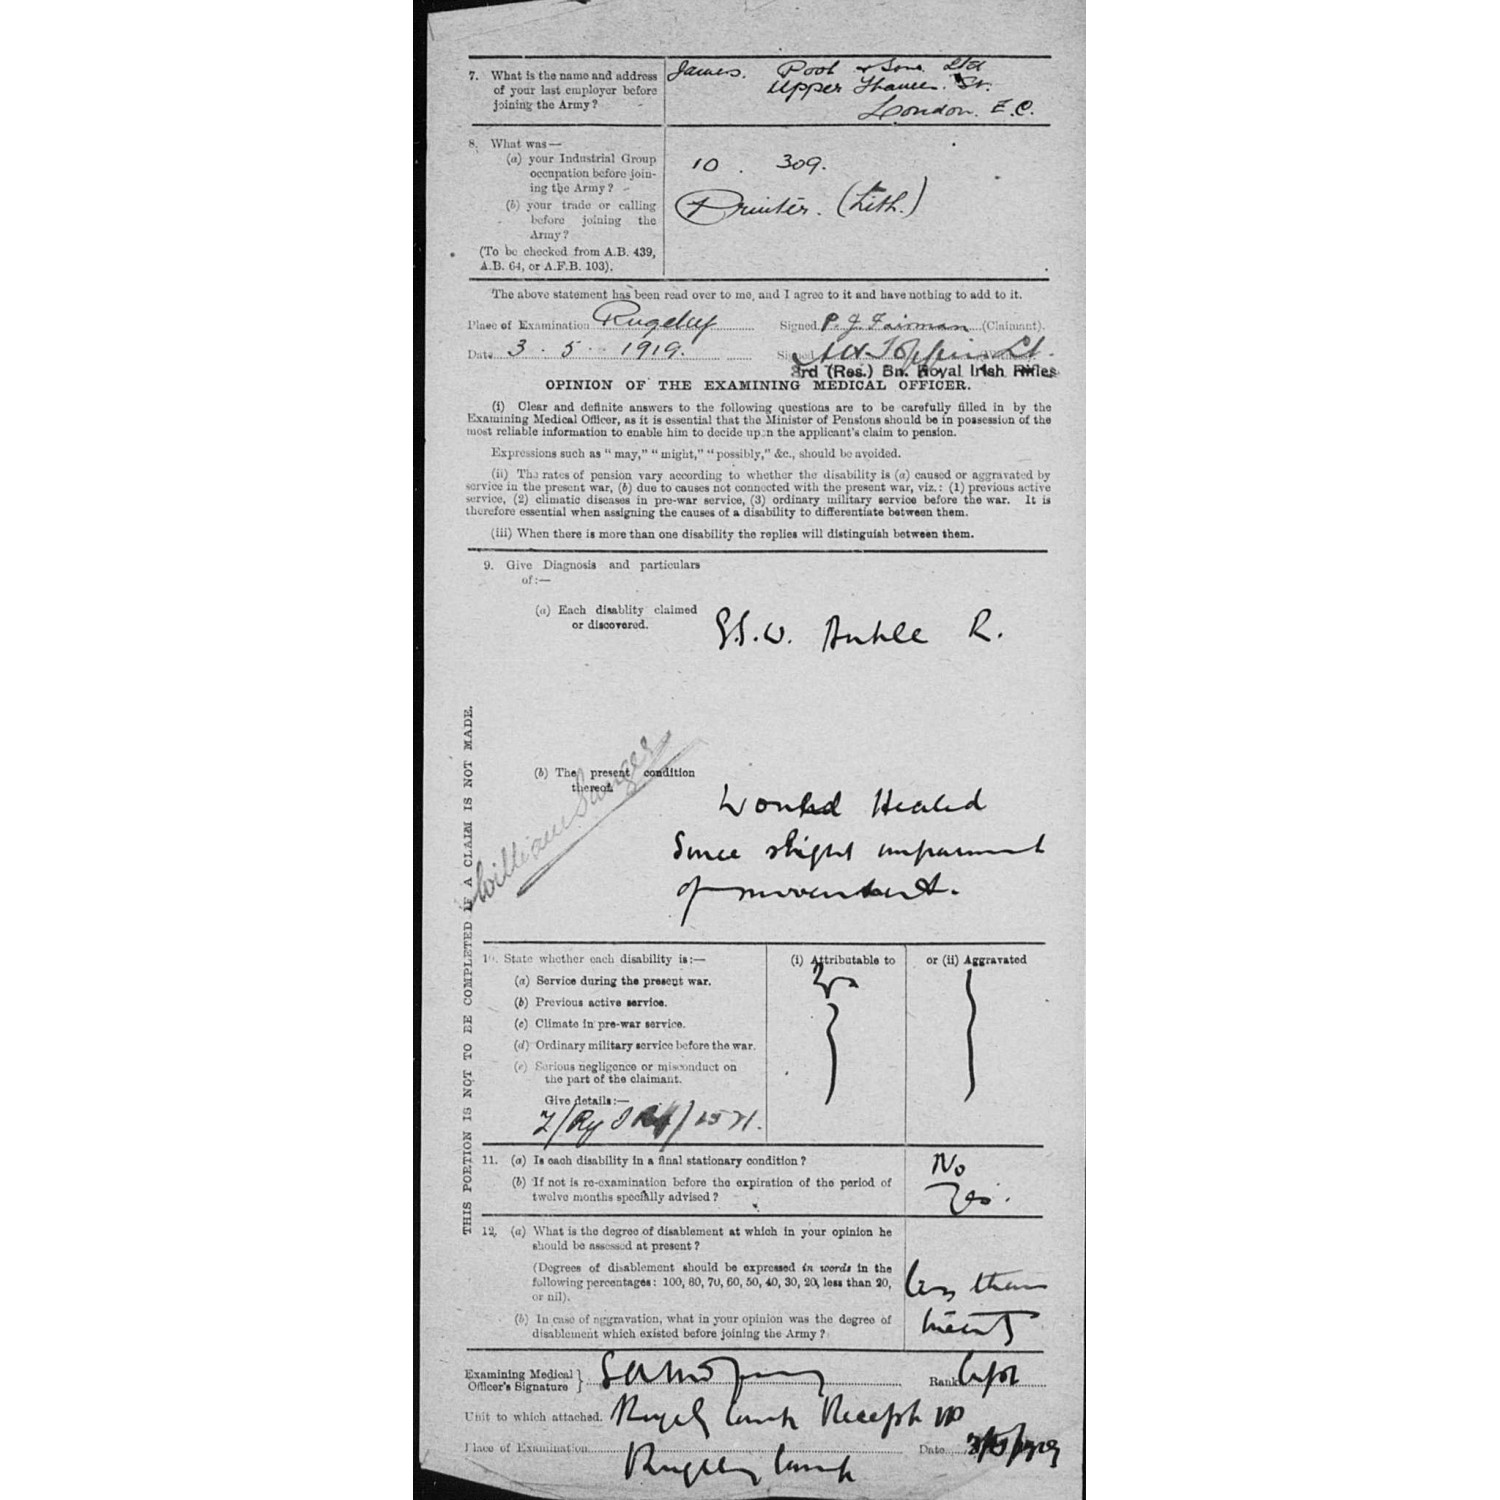 7. What is the name and address
of your last employer before
joining the Army?
James. Poot & Sons Ltd
Upper Thames. St.
London. E.C.
8. What was—
(a) your Industrial Group
occupation before join-
ing the Army?
10 . 309.
(b) your trade or calling
before joining the
Army?
Printer. (Lith.)
(To be checked from A.B. 439,
A.B. 64, or A.F.B. 103).
The above statement has been read over to me, and I agree to it and have nothing to add to it.
Place of Examination Rugeley Signed P. J. Fairman (Claimant).
Date 3 . 5 . 1919. Signed Lt.
3rd (Res.) Bn. Royal Irish Rifles
OPINION OF THE EXAMINING MEDICAL OFFICER.
(i) Clear and definite answers to the following questions are to be carefully filled in by the
Examining Medical Officer, as it is essential that the Minister of Pensions should be in possession of the
most reliable information to enable him to decide upon the applicant's claim to pension.
Expressions such as "may," "might," "possibly," &c., should be avoided.
(ii) The rates of pension vary according to whether the disability is (a) caused or aggravated by
service in the present war, (b) due to causes not connected with the present war, viz.: (1) previous active
service, (2) climatic diseases in pre-war service, (3) ordinary military service before the war. It is
therefore essential when assigning the causes of a disability to differentiate between them.
(iii) When there is more than one disability the replies will distinguish between them.
9. Give Diagnosis and particulars
of:—
(a) Each disablity claimed
or discovered.
G.S.W. Ankle R.
(b) The present condition
thereof.
William Sanger
Wound Healed
Some slight impairment
of movement.
THIS PORTION IS NOT TO BE COMPLETED IF A CLAIM IS NOT MADE.
10. State whether each disability is:—
(i) Attributable to
or (ii) Aggravated
(a) Service during the present war.
Yes
(b) Previous active service.
(c) Climate in pre-war service.
(d) Ordinary military service before the war.
(e) Serious negligence or misconduct on
the part of the claimant.
Give details:—
11. (a) Is each disability in a final stationary condition?
No
(b) If not is re-examination before the expiration of the period of
twelve months specially advised?
Yes.
12. (a) What is the degree of disablement at which in your opinion he
should be assessed at present?
(Degrees of disablement should be expressed in words in the
following percentages: 100, 80, 70, 60, 50, 40, 30, 20, less than 20,
or nil).
less than
twenty
(b) In case of aggravation, what in your opinion was the degree of
disablement which existed before joining the Army?
Examining Medical
Officer's Signature
Rank Capt
Unit to which attached. Rugeley Camp Recept
Place of Examination Rugeley Camp Date